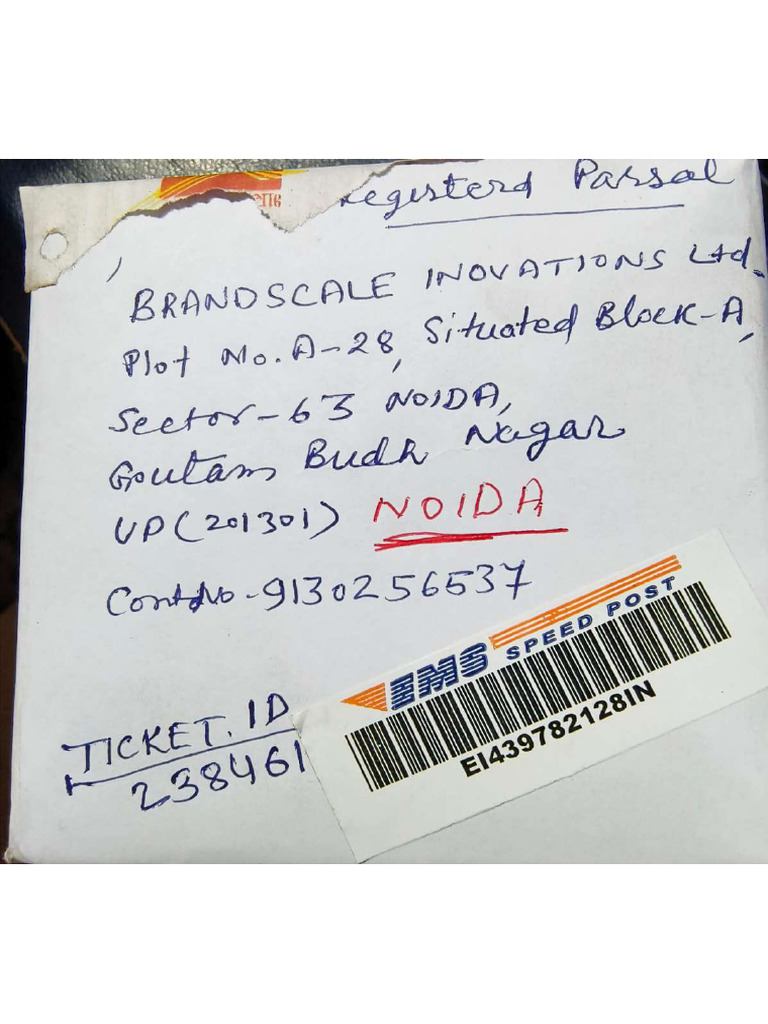 Registerd Parsal
BRANDSCALE INOVATIONS Ltd.
Plot No. A-28, Situated Block-A,
Sector-63 NOIDA,
Goutam Budh Nagar
UP (201301) NOIDA
Cont No - 9130256537
EMS SPEED POST
EI439782128IN
TICKET. ID
238461